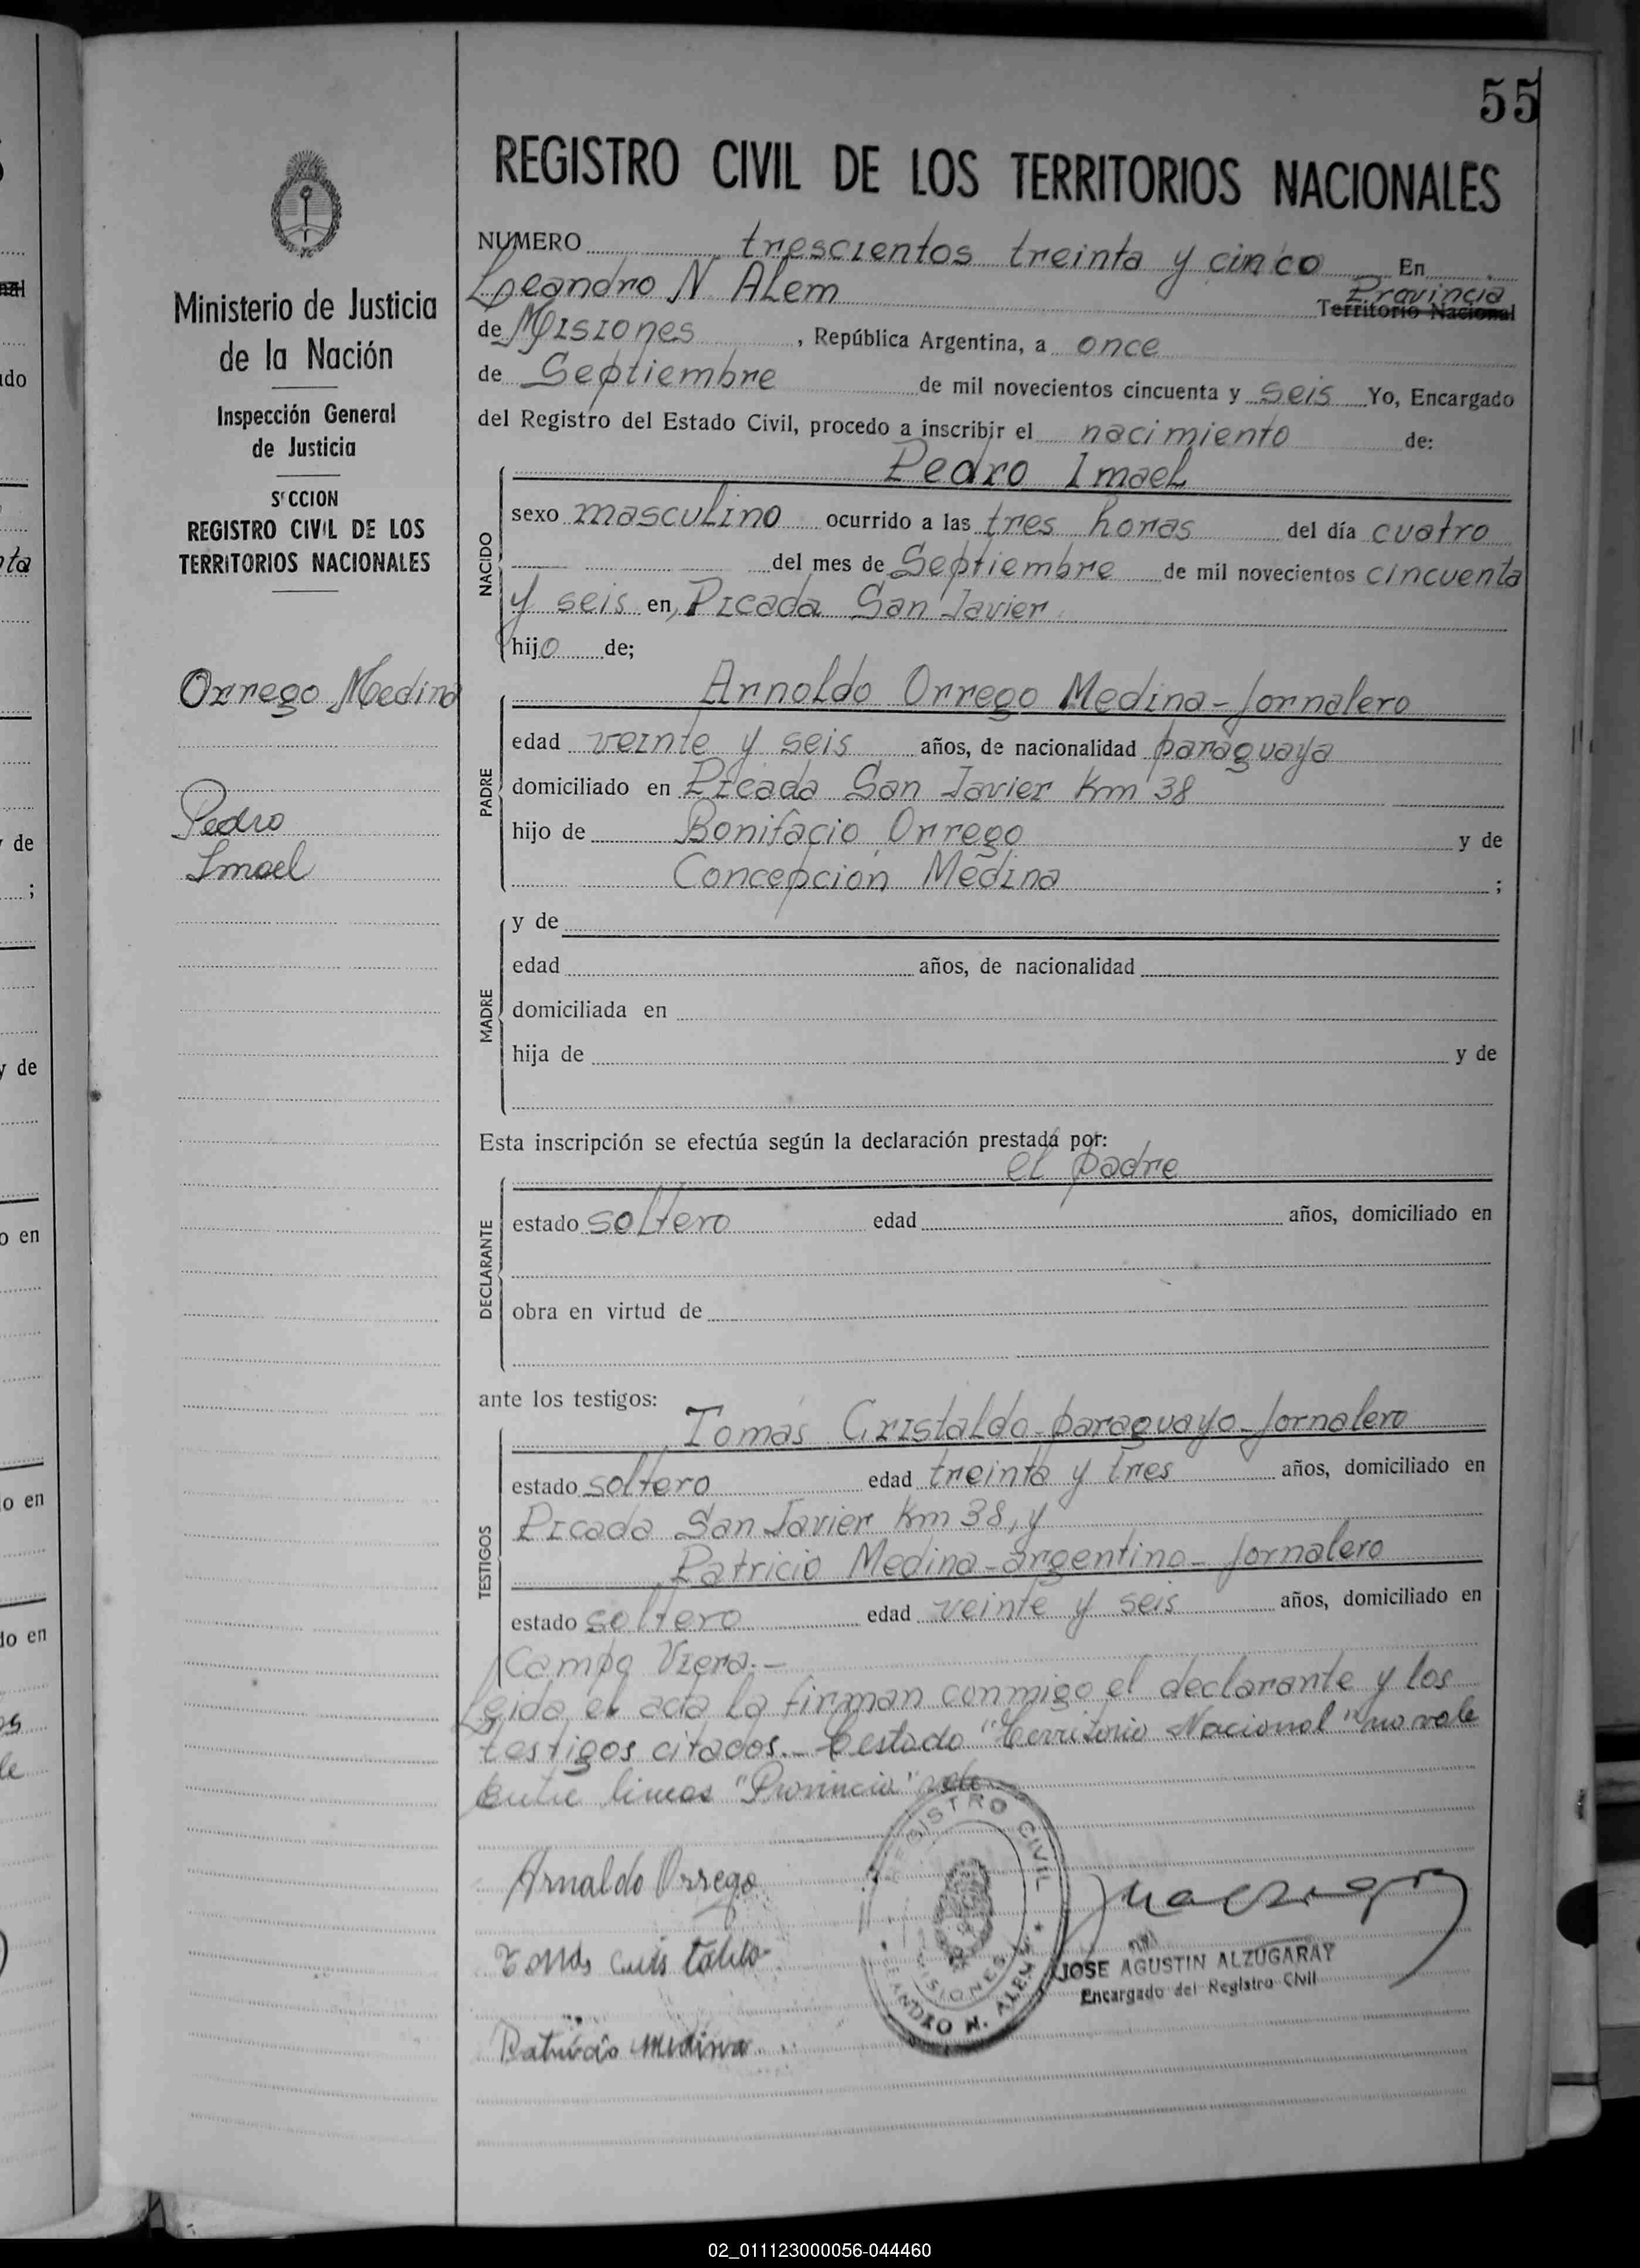 55
REGISTRO CIVIL DE LOS TERRITORIOS NACIONALES
Ministerio de Justicia
de la Nación
Inspección General
de Justicia
SECCION
REGISTRO CIVIL DE LOS
TERRITORIOS NACIONALES
Orrego Medina
Pedro
Imael
NUMERO trescientos treinta y cinco En
Leandro N. Alem Provincia Territorio Nacional
de Misiones, República Argentina, a once
de Septiembre de mil novecientos cincuenta y seis Yo, Encargado
del Registro del Estado Civil, procedo a inscribir el nacimiento de:
Pedro Imael
NACIDO
sexo masculino ocurrido a las tres horas del día cuatro
del mes de Septiembre de mil novecientos cincuenta
y seis en, Picada San Javier
hijo de;
PADRE
Arnoldo Orrego Medina-Jornalero
edad veinte y seis años, de nacionalidad paraguaya
domiciliado en Picada San Javier Km 38
hijo de Bonifacio Orrego y de
Concepción Medina ;
MADRE
y de
edad años, de nacionalidad
domiciliada en
hija de y de
Esta inscripción se efectúa según la declaración prestada por:
el padre
DECLARANTE
estado soltero edad años, domiciliado en
obra en virtud de
ante los testigos:
TESTIGOS
Tomás Cristaldo-paraguayo-Jornalero
estado soltero edad treinta y tres años, domiciliado en
Picada San Javier Km 38, y
Patricio Medina-argentino-Jornalero
estado soltero edad veinte y seis años, domiciliado en
Campo Viera.-
Leida el acta la firman conmigo el declarante y los
testigos citados.- Testado "Territorio Nacional" no vale
Entre lineas "Provincia" vale
Arnaldo Orrego
Patricio Medina
REGISTRO CIVIL
MISIONES
LEANDRO N. ALEM
JOSE AGUSTIN ALZUGARAY
Encargado del Registro Civil
02_011123000056-044460